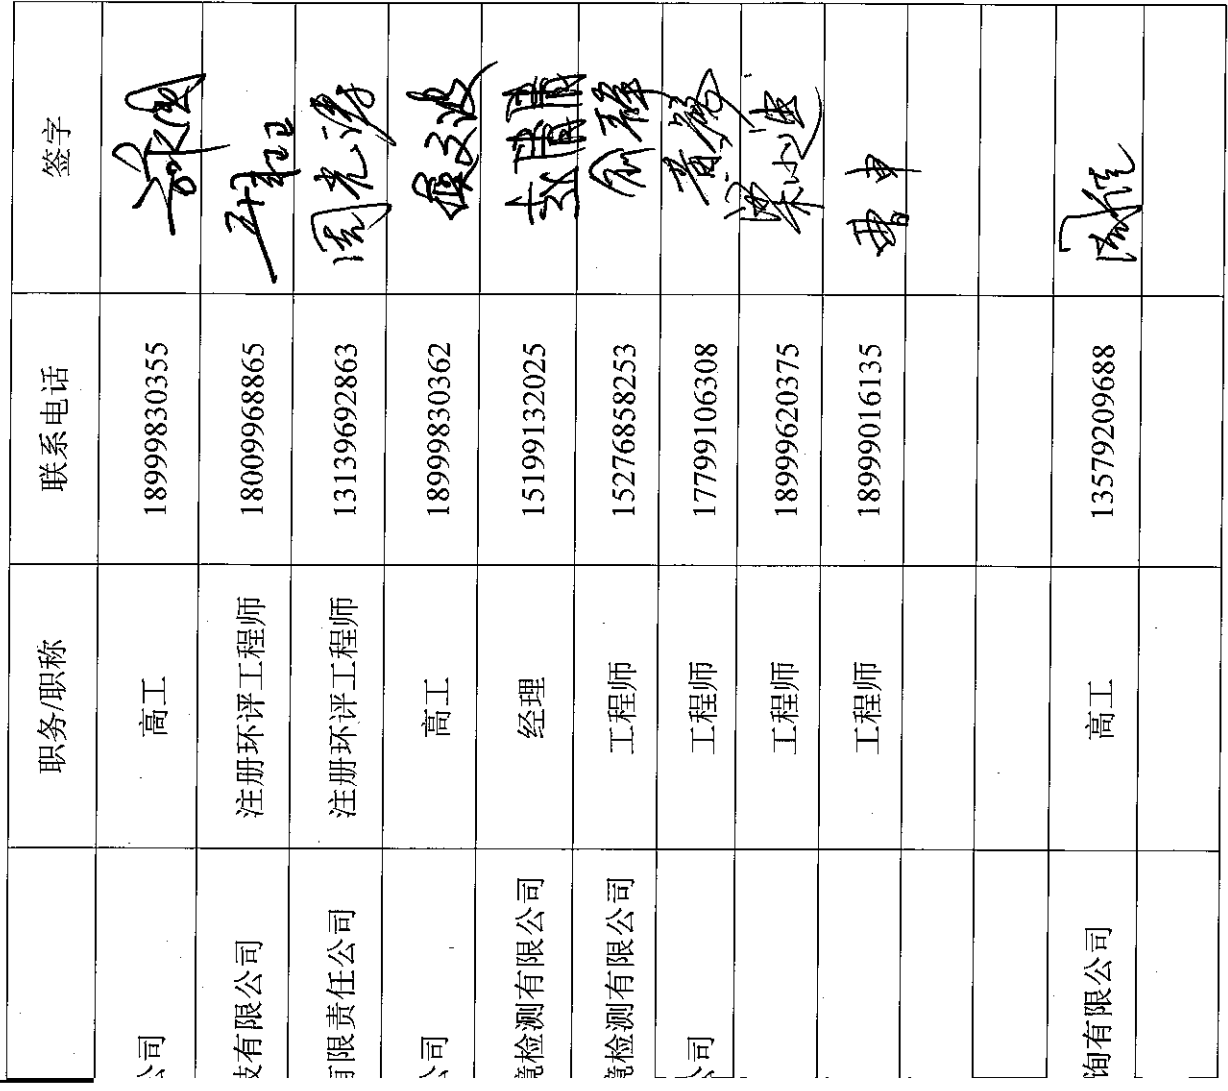 职务/职称 联系电话 签字
公司 高工 18999830355
技有限公司 注册环评工程师 18009968865
有限责任公司 注册环评工程师 13139692863
公司 高工 18999830362
境检测有限公司 经理 15199132025
境检测有限公司 工程师 15276858253
公司 工程师 17799106308
工程师 18999620375
工程师 18999016135
询有限公司 高工 13579209688